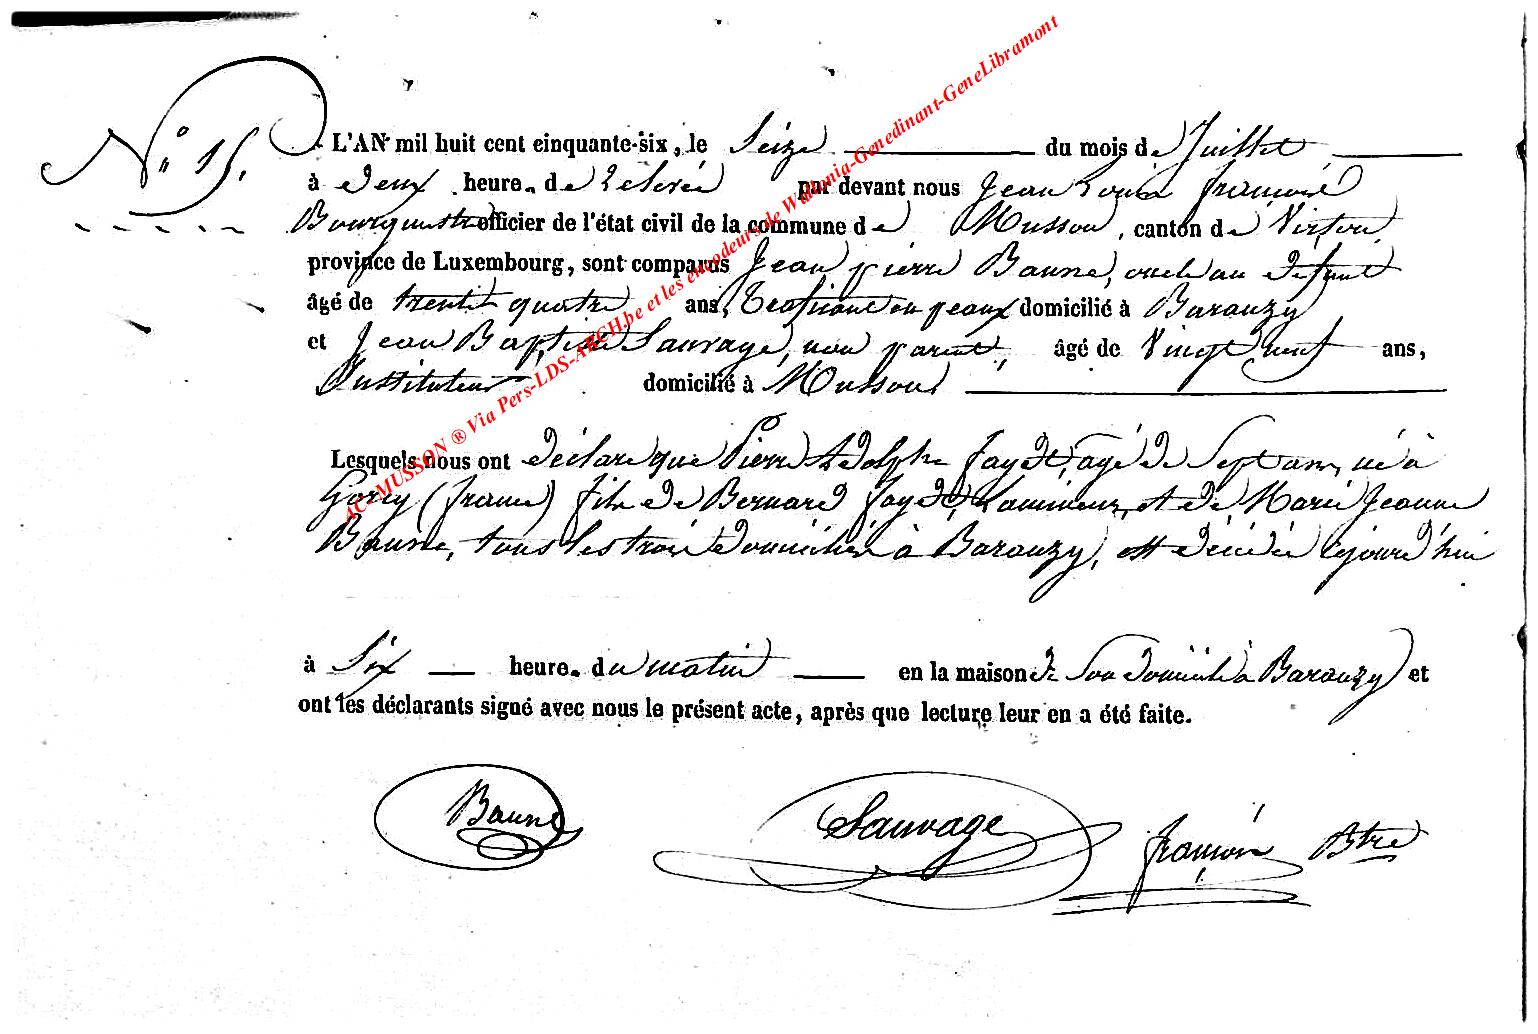 N° 15.
L'AN mil huit cent cinquante-six, le Seize du mois de Juillet
à deux heure. de relevée par devant nous Jean Louis François
Bourgmestre officier de l'état civil de la commune de Musson, canton de Virton,
province de Luxembourg, sont comparus Jean pierre Baune, oncle au défunt
âgé de trente quatre ans, domicilié à Baranzy
et Jean Baptiste Sauvage, non parent, âgé de Vingt neuf ans,
Instituteur domicilié à Musson
Lesquels nous ont déclaré que Pierre Adolphe Fayet, agé de Sept ans, né à
Gorcy (france) fils de Bernard Fayet, Lamineur, et de Marie Jeanne
Baune, tous les trois domiciliés à Baranzy, est décédé cejourd'hui
à Six heure. du matin en la maison de Son domicile à Baranzy et
ont les déclarants signé avec nous le présent acte, après que lecture leur en a été faite.
Baune Sauvage françois Btre
AC-MUSSON ® Via Pers-LDS-ARCH.be et les encodeurs de Wallonia-Genedinant-GeneLibramont